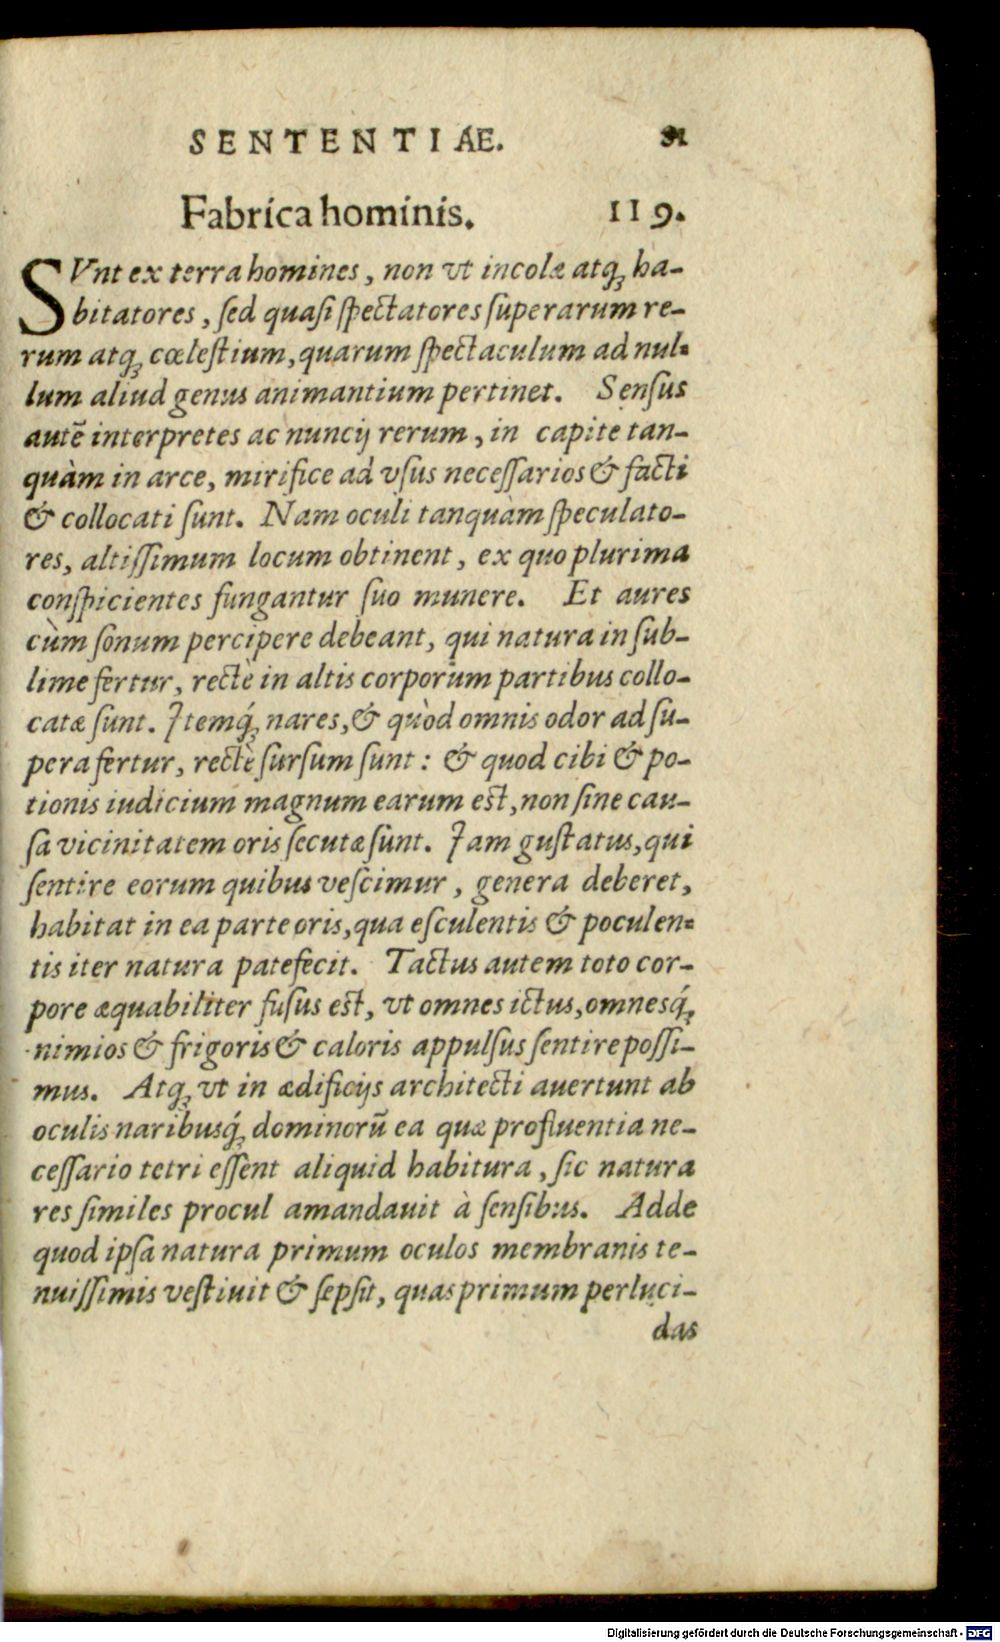 SENTENTIAE. 31
Fabrica hominis. 119.
SVnt ex terra homines, non vt incolæ atq́ꝫ ha-
bitatores, ſed quaſi ſpectatores ſuperarum re-
rum atqꝫ cœleſtium, quarum ſpectaculum ad nul-
lum aliud genus animantium pertinet. Senſus
autē interpretes ac nuncij rerum, in capite tan-
quàm in arce, mirifice ad vſus neceſſarios & facti
& collocati ſunt. Nam oculi tanquàm ſpeculato-
res, altiſſimum locum obtinent, ex quo plurima
conſpicientes fungantur ſuo munere. Et aures
cùm ſonum percipere debeant, qui natura in ſub-
lime fertur, rectè in altis corporum partibus collo-
catæ ſunt. Itemq́ꝫ nares, & quòd omnis odor ad ſu-
pera fertur, rectè ſurſum ſunt: & quod cibi & po-
tionis iudicium magnum earum eſt, non ſine cau-
ſa vicinitatem oris ſecutæ ſunt. Iam guſtatus, qui
ſentire eorum quibus veſcimur, genera deberet,
habitat in ea parte oris, qua eſculentis & poculen-
tis iter natura patefecit. Tactus autem toto cor-
pore æquabiliter fuſus eſt, vt omnes ictus, omnesq́ꝫ
nimios & frigoris & caloris appulſus ſentire poſſi-
mus. Atqꝫ vt in ædificijs architecti auertunt ab
oculis naribusq́ꝫ dominorū ea quæ profluentia ne-
ceſſario tetri eſſent aliquid habitura, ſic natura
res ſimiles procul amandauit à ſenſibus. Adde
quod ipſa natura primum oculos membranis te-
nuiſſimis veſtiuit & ſepſit, quas primum perluci-
das
Digitalisierung gefördert durch die Deutsche Forschungsgemeinschaft - DFG